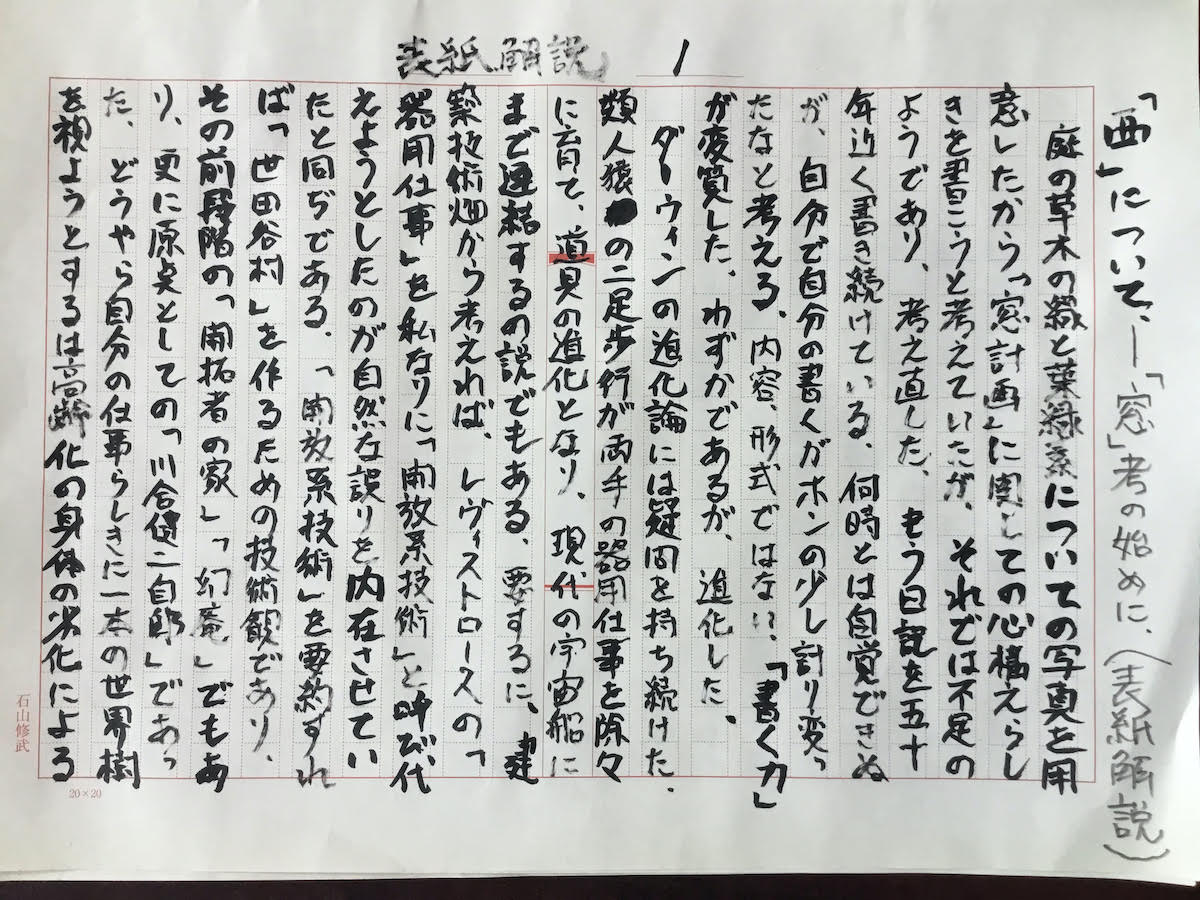 表紙解説 1
「西」について、―「窓」考の始めに、(表紙解説)
庭の草木の緑と葉緑素についての写真を用
意したから「窓計画」に関しての心構えらし
きを書こうと考えていたが、それでは不足の
ようであり、考え直した、もう日記を五十
年近く書き続けている、何時とは自覚できぬ
が、自分で自分の書くがホンの少し計り変っ
たなと考える、内容、形式ではない、「書く力」
が変質した、わずかであるが、進化した、
ダーウィンの進化論には疑問を持ち続けた、
類人猿の二足歩行が両手の器用仕事を除々
に育て、道具の進化となり、現代の宇宙船に
まで連結するの説でもある、要するに、建
築技術畑から考えれば、レヴィストロースの「
器用仕事」を私なりに「開放系技術」と呼び代
えようとしたのが自然な誤りを内在させてい
たと同じである、「開放系技術」を要約すれ
ば「世田谷村」を作るための技術観であり、
その前段階の「開拓者の家」「幻庵」でもあ
り、更に原点としての「川合健二自邸」であっ
た、どうやら自分の仕事らしきに一本の世界樹
を視ようとするは高齢化の身体の劣化による
石山修武
20×20